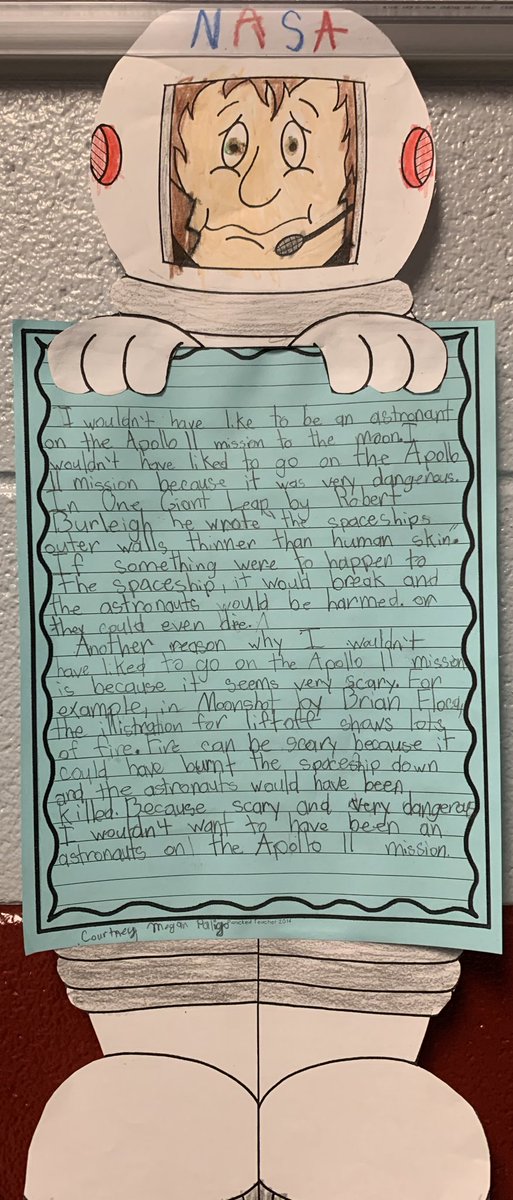 NASA
I wouldn't have like to be an astronant
on the Apollo 11 mission to the moon. I
wouldn't have liked to go on the Apollo
11 mission because it was very dangerous.
In One Giant Leap by Robert
Burleigh he wrote "the spaceships
outer walls thinner than human skin."
If something were to happen to
the spaceship, it would break and
the astronauts would be harmed. or
they could even die.
Another reason why I wouldn't
have liked to go on the Apollo 11 mission
is because it seems very scary. For
example, in Moonshot by Brian Floca,
the illistration for liftoff shows lots
of fire. Fire can be scary because it
could have burnt the spaceship down
and the astronauts would have been
killed. Because scary and very dangerous
I wouldn't want to have been an
astronauts on the Apollo 11 mission.
Courtney, Megan Paligo
Teacher 2014